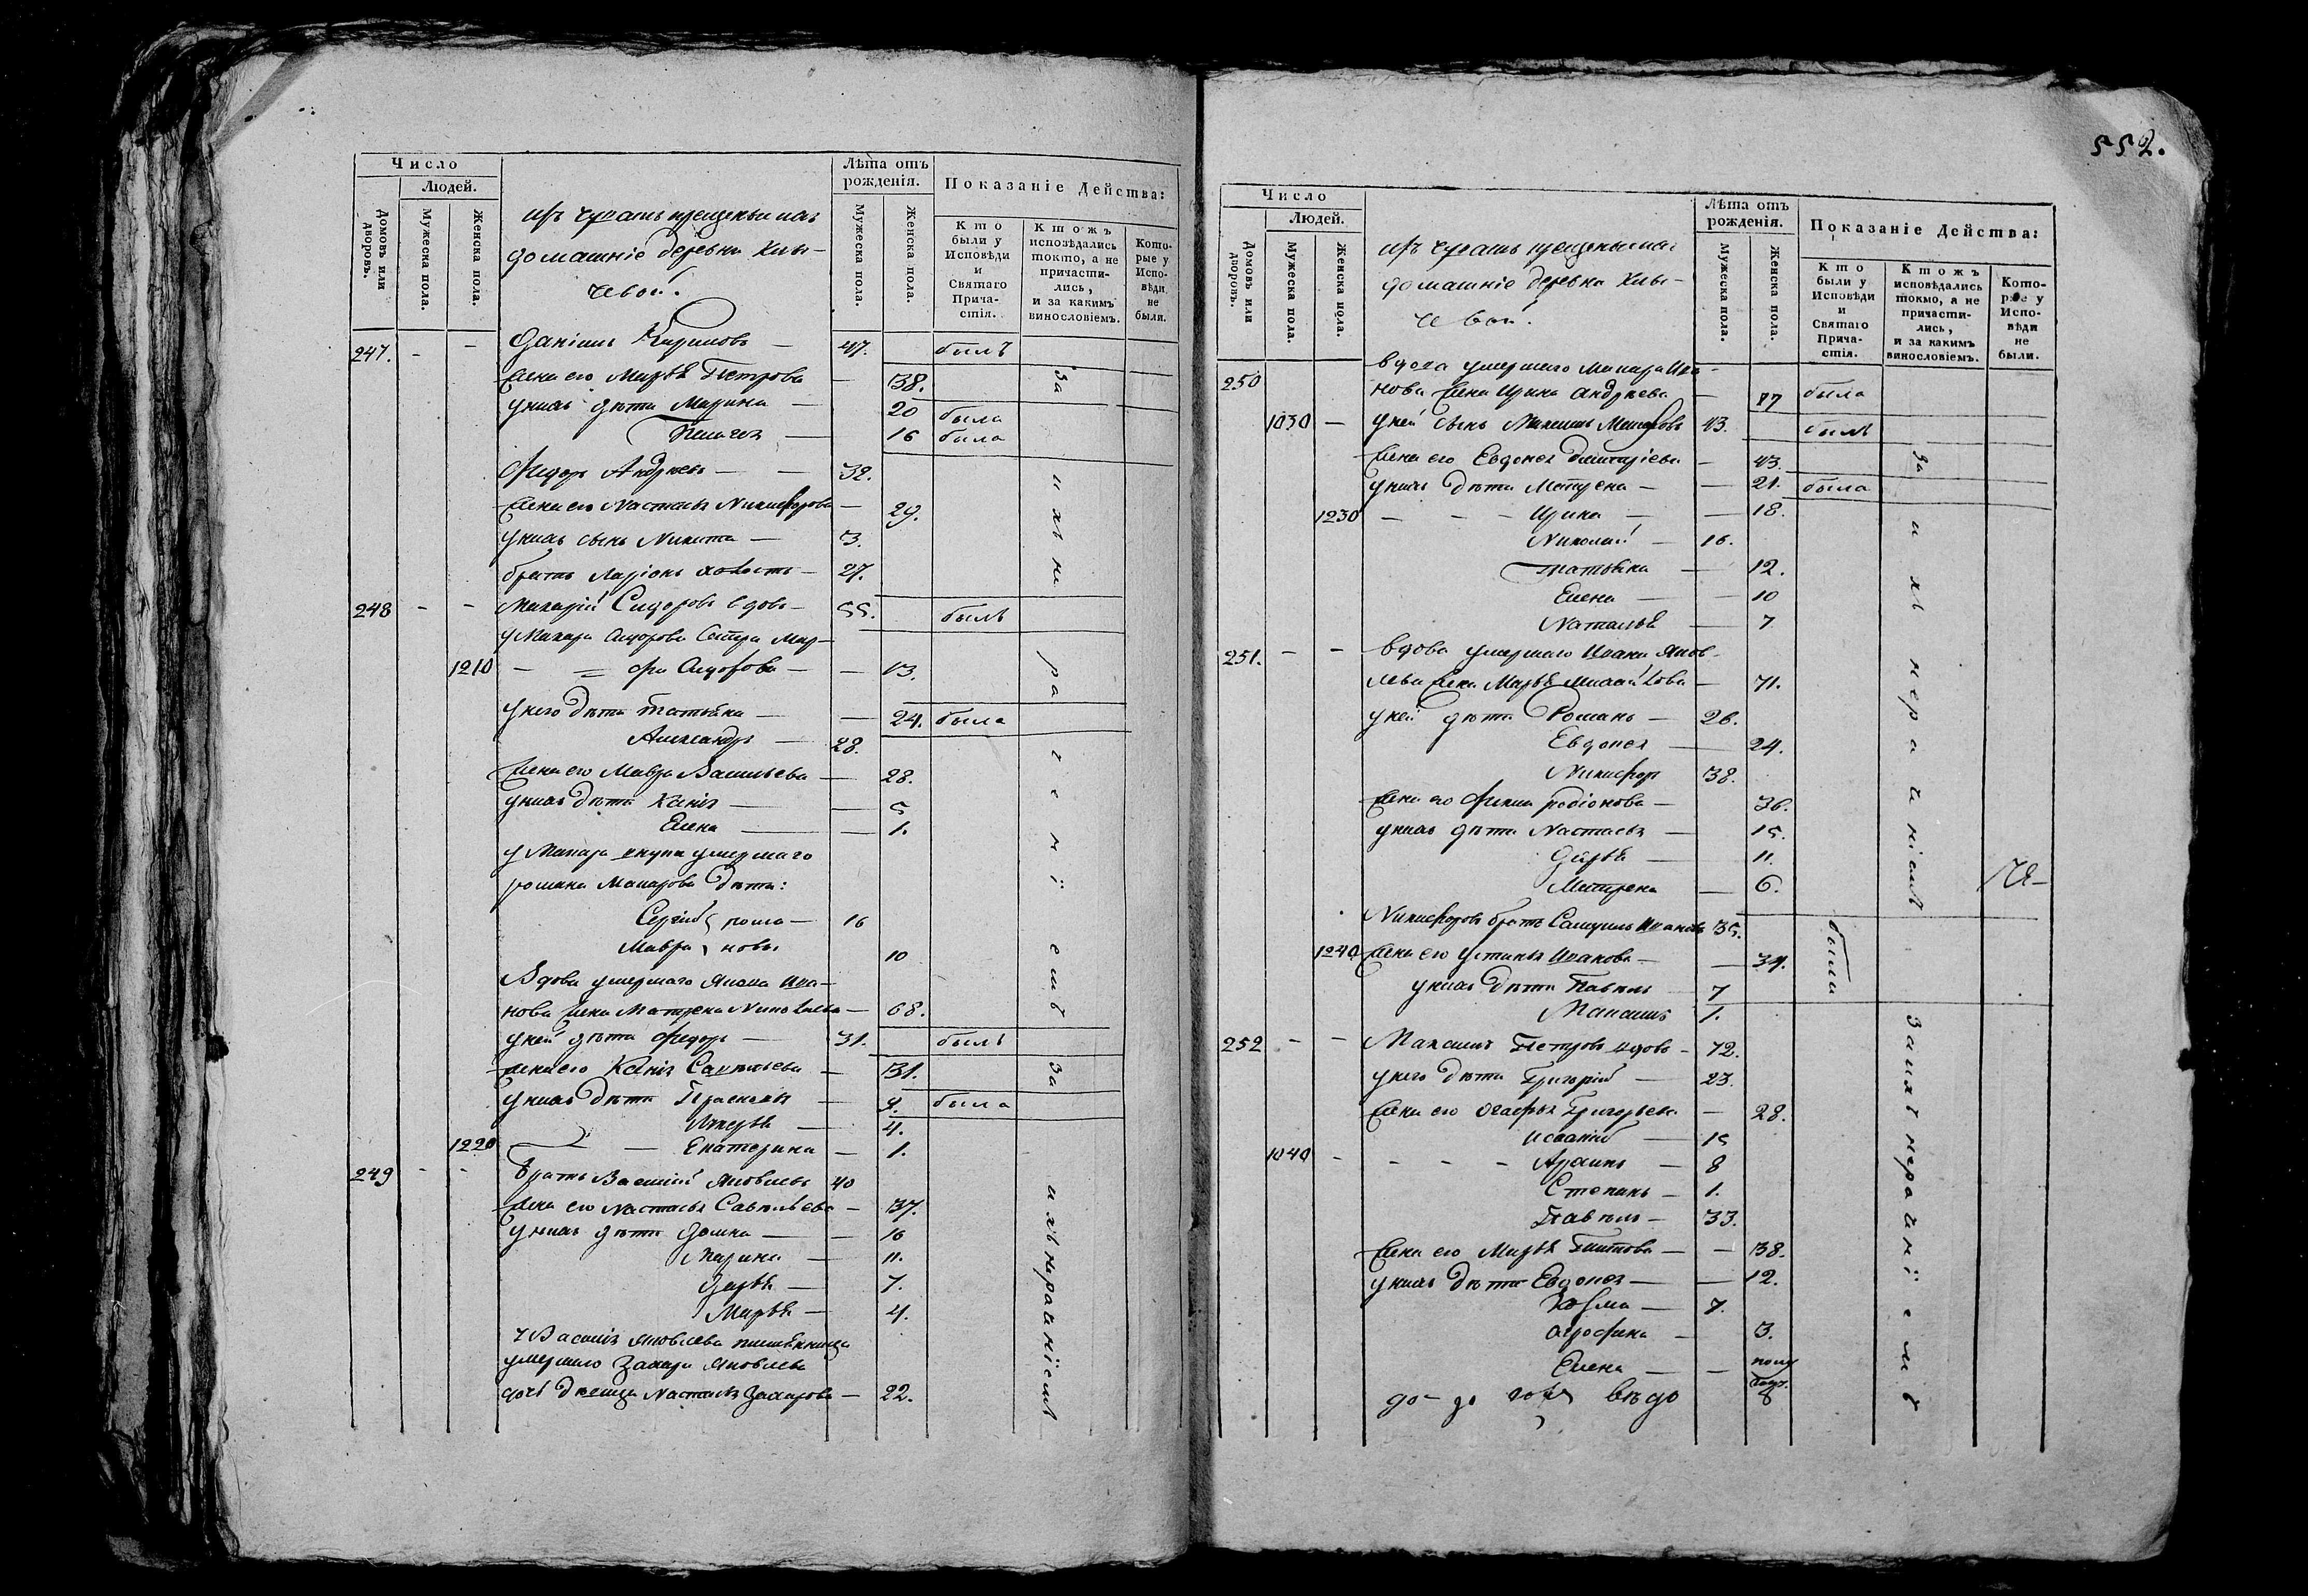 Число
Людей.
Домовъ или дворовъ.
Мужеска пола.
Женска пола.
изъ чувашъ крещеныхъ
домашніе деревни Клы-
чевой.
Лѣта отъ рожденія.
Мужеска пола.
Женска пола.
Показаніе Действа:
Кто были у Исповѣди и Святаго Причастія.
Ктожъ исповѣдались токмо, а не причастились, и за какимъ винословіемъ.
Которые у Исповѣди не были.
247. - - Даніилъ Кириловъ — 47. былъ
жена его Марья Петрова — 38.
у нихъ дѣти Марина — 20 была
Пелагея — 16 была
Федоръ Андреевъ — 32.
жена его Настасья Никифорова — 29.
у нихъ сынъ Никита — 3.
братъ Ларіонъ холостъ — 27.
248 - - Макарій Сидоровъ вдовъ — 55. былъ
у Макара Сидорова сестра Мар-
1210 - = фа Сидорова — 13.
у него дѣти Татьяна — 24. была
Александръ — 28.
жена его Мавра Васильева — 28.
у нихъ дѣти Ксенія — 5
Елена — 1.
у Макара внуки умершаго
романа Макарова дѣти:
Сергій рома — 16
Мавра новы 10
Вдова умершаго Якова Ива-
нова жена Матрена Николаева — 68.
у ней дѣти Федоръ — 31. былъ
жена его Ксенія Савельева — 31.
у нихъ дѣти Прасковья — 9. была
Марья — 4.
1220 — Екатерина — 1.
249 - - братъ Василій Яковлевъ 40
жена его Настасья Савельева — 37.
у нихъ дѣти Домна — 16
Марина — 11.
Дарья — 7.
Марья — 4.
у Василія Яковлева племянница
умершаго Захара Яковлева
дочь девица Настасья Захарова — 22.
за ихъ нераченіемъ
за ихъ нераченіемъ
552.
Число
Людей.
Домовъ или дворовъ.
Мужеска пола.
Женска пола.
изъ чувашъ крещеныхъ
домашніе деревни Клы-
чевой.
Лѣта отъ рожденія.
Мужеска пола.
Женска пола.
Показаніе Действа:
Кто были у Исповѣди и Святаго Причастія.
Ктожъ исповѣдались токмо, а не причастились, и за какимъ винословіемъ.
Которые у Исповѣди не были.
250 вдова умершаго Макара Ива-
нова жена Ирина Андреева — 87 была
1030 — у ней сынъ Михаилъ Макаровъ 43. былъ
жена его Евдокея Дмитріева — 43.
у нихъ дѣти Матрена — 21. была
1230 — Ирина — 18.
Николай — 16.
Татьяна — 12.
Елена — 10
Наталья — 7
251. - - вдова умершаго Ивана Яков-
лева жена Марья Михайлова — 71.
у ней дѣти Романъ — 26.
Евдокея — 24.
Никифоръ 38.
жена его Фекла родіонова — 36.
у нихъ дѣти Настасья — 15.
Дарья — 11.
Матрена — 6.
Никифоровъ братъ Самуилъ Ивановъ 35.
1240 жена его Устинья Иванова — 34. были
у нихъ дѣти Павелъ — 7
Максимъ 1.
252 - - Максимъ Петровъ вдовъ - 72.
у него дѣти Григорій — 23.
жена его Агафья Григорьева — 28.
Исаакій — 15
1040 - - - - Архипъ — 8
Степанъ — 1.
Павелъ — 33.
жена его Марья Титова — 38.
у нихъ дѣти Евдокея — 12.
Козма — 7.
Агрофина — 3.
Елена —
за ихъ нераченіемъ
за ихъ нераченіемъ